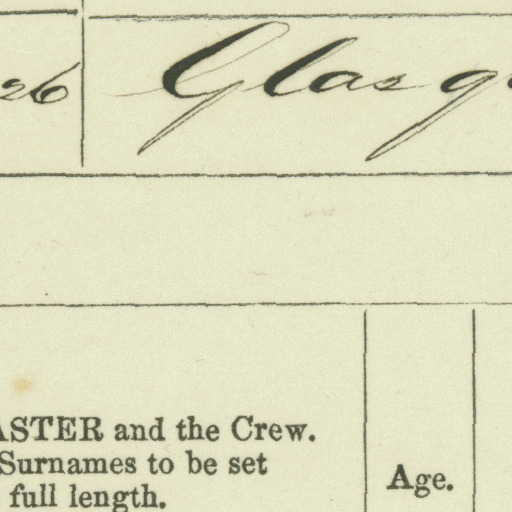 26 Glasg
ASTER and the Crew.
Surnames to be set
full length.
Age.